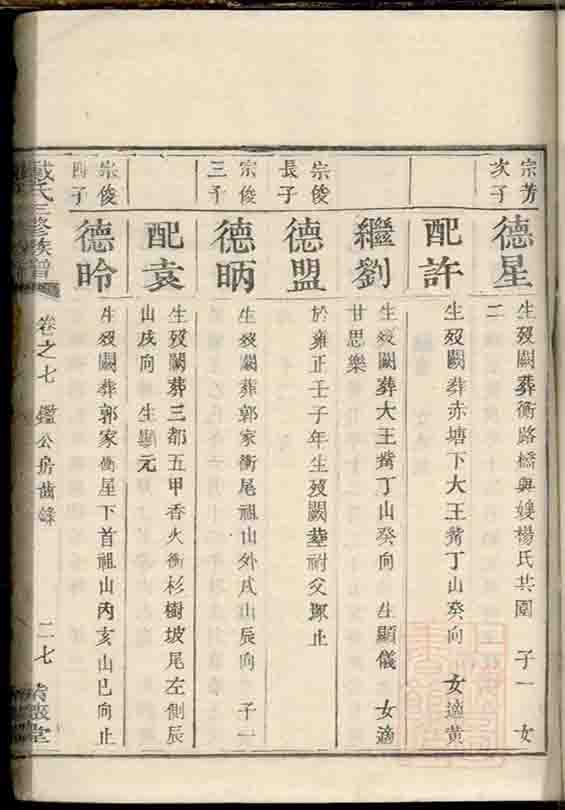 宗芳次子
德星
生歿闕葬衝路橋與嫂楊氏共圍 子一 女
二
配許
生歿闕葬赤塘下大王觜丁山癸向 女適黃
繼劉
生歿闕葬大王觜丁山癸向 生顯儀 女適
甘思樂
宗俊長子
德盟
於雍正壬子年生歿闕葬祔父塚止
宗俊三子
德昞
生歿闕葬郭家衝尾祖山外戌山辰向 子一
配袁
生歿闕葬三都五甲香火衝杉樹坡尾左側辰
山戌向 生顯元
宗俊四子
德昤
生歿闕葬郭家衝屋下首祖山丙亥山巳向止
戴氏三修族譜
卷之七 鑑公房
二七